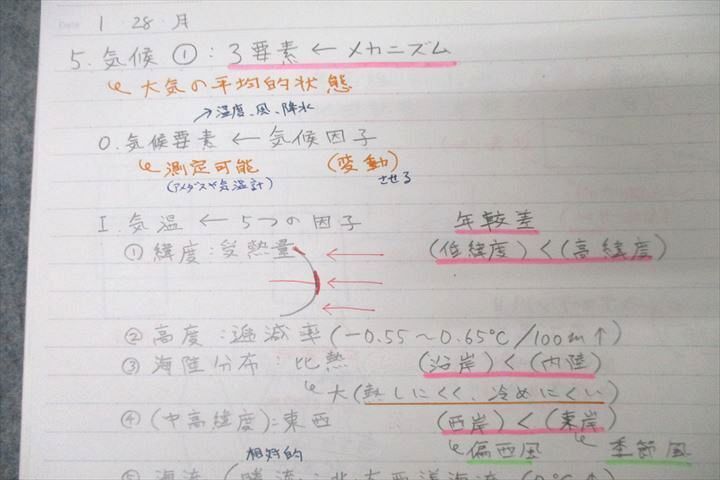 Date 1 28 月
5. 気候 ①: 3要素 ← メカニズム
大気の平均的状態
→温度、風、降水
0. 気候要素 ← 気候因子
測定可能 (変動)
(アメダスや気温計) させる
I. 気温 ← 5つの因子 年較差
① 緯度: 受熱量 (低緯度) < (高緯度)
② 高度: 逓減率 (-0.55〜0.65℃/100m↑)
③ 海陸分布: 比熱 (沿岸) < (内陸)
大(熱しにくく、冷めにくい)
④ (中高緯度): 東西 (西岸) < (東岸)
相対的 偏西風 季節風
⑤ 海流